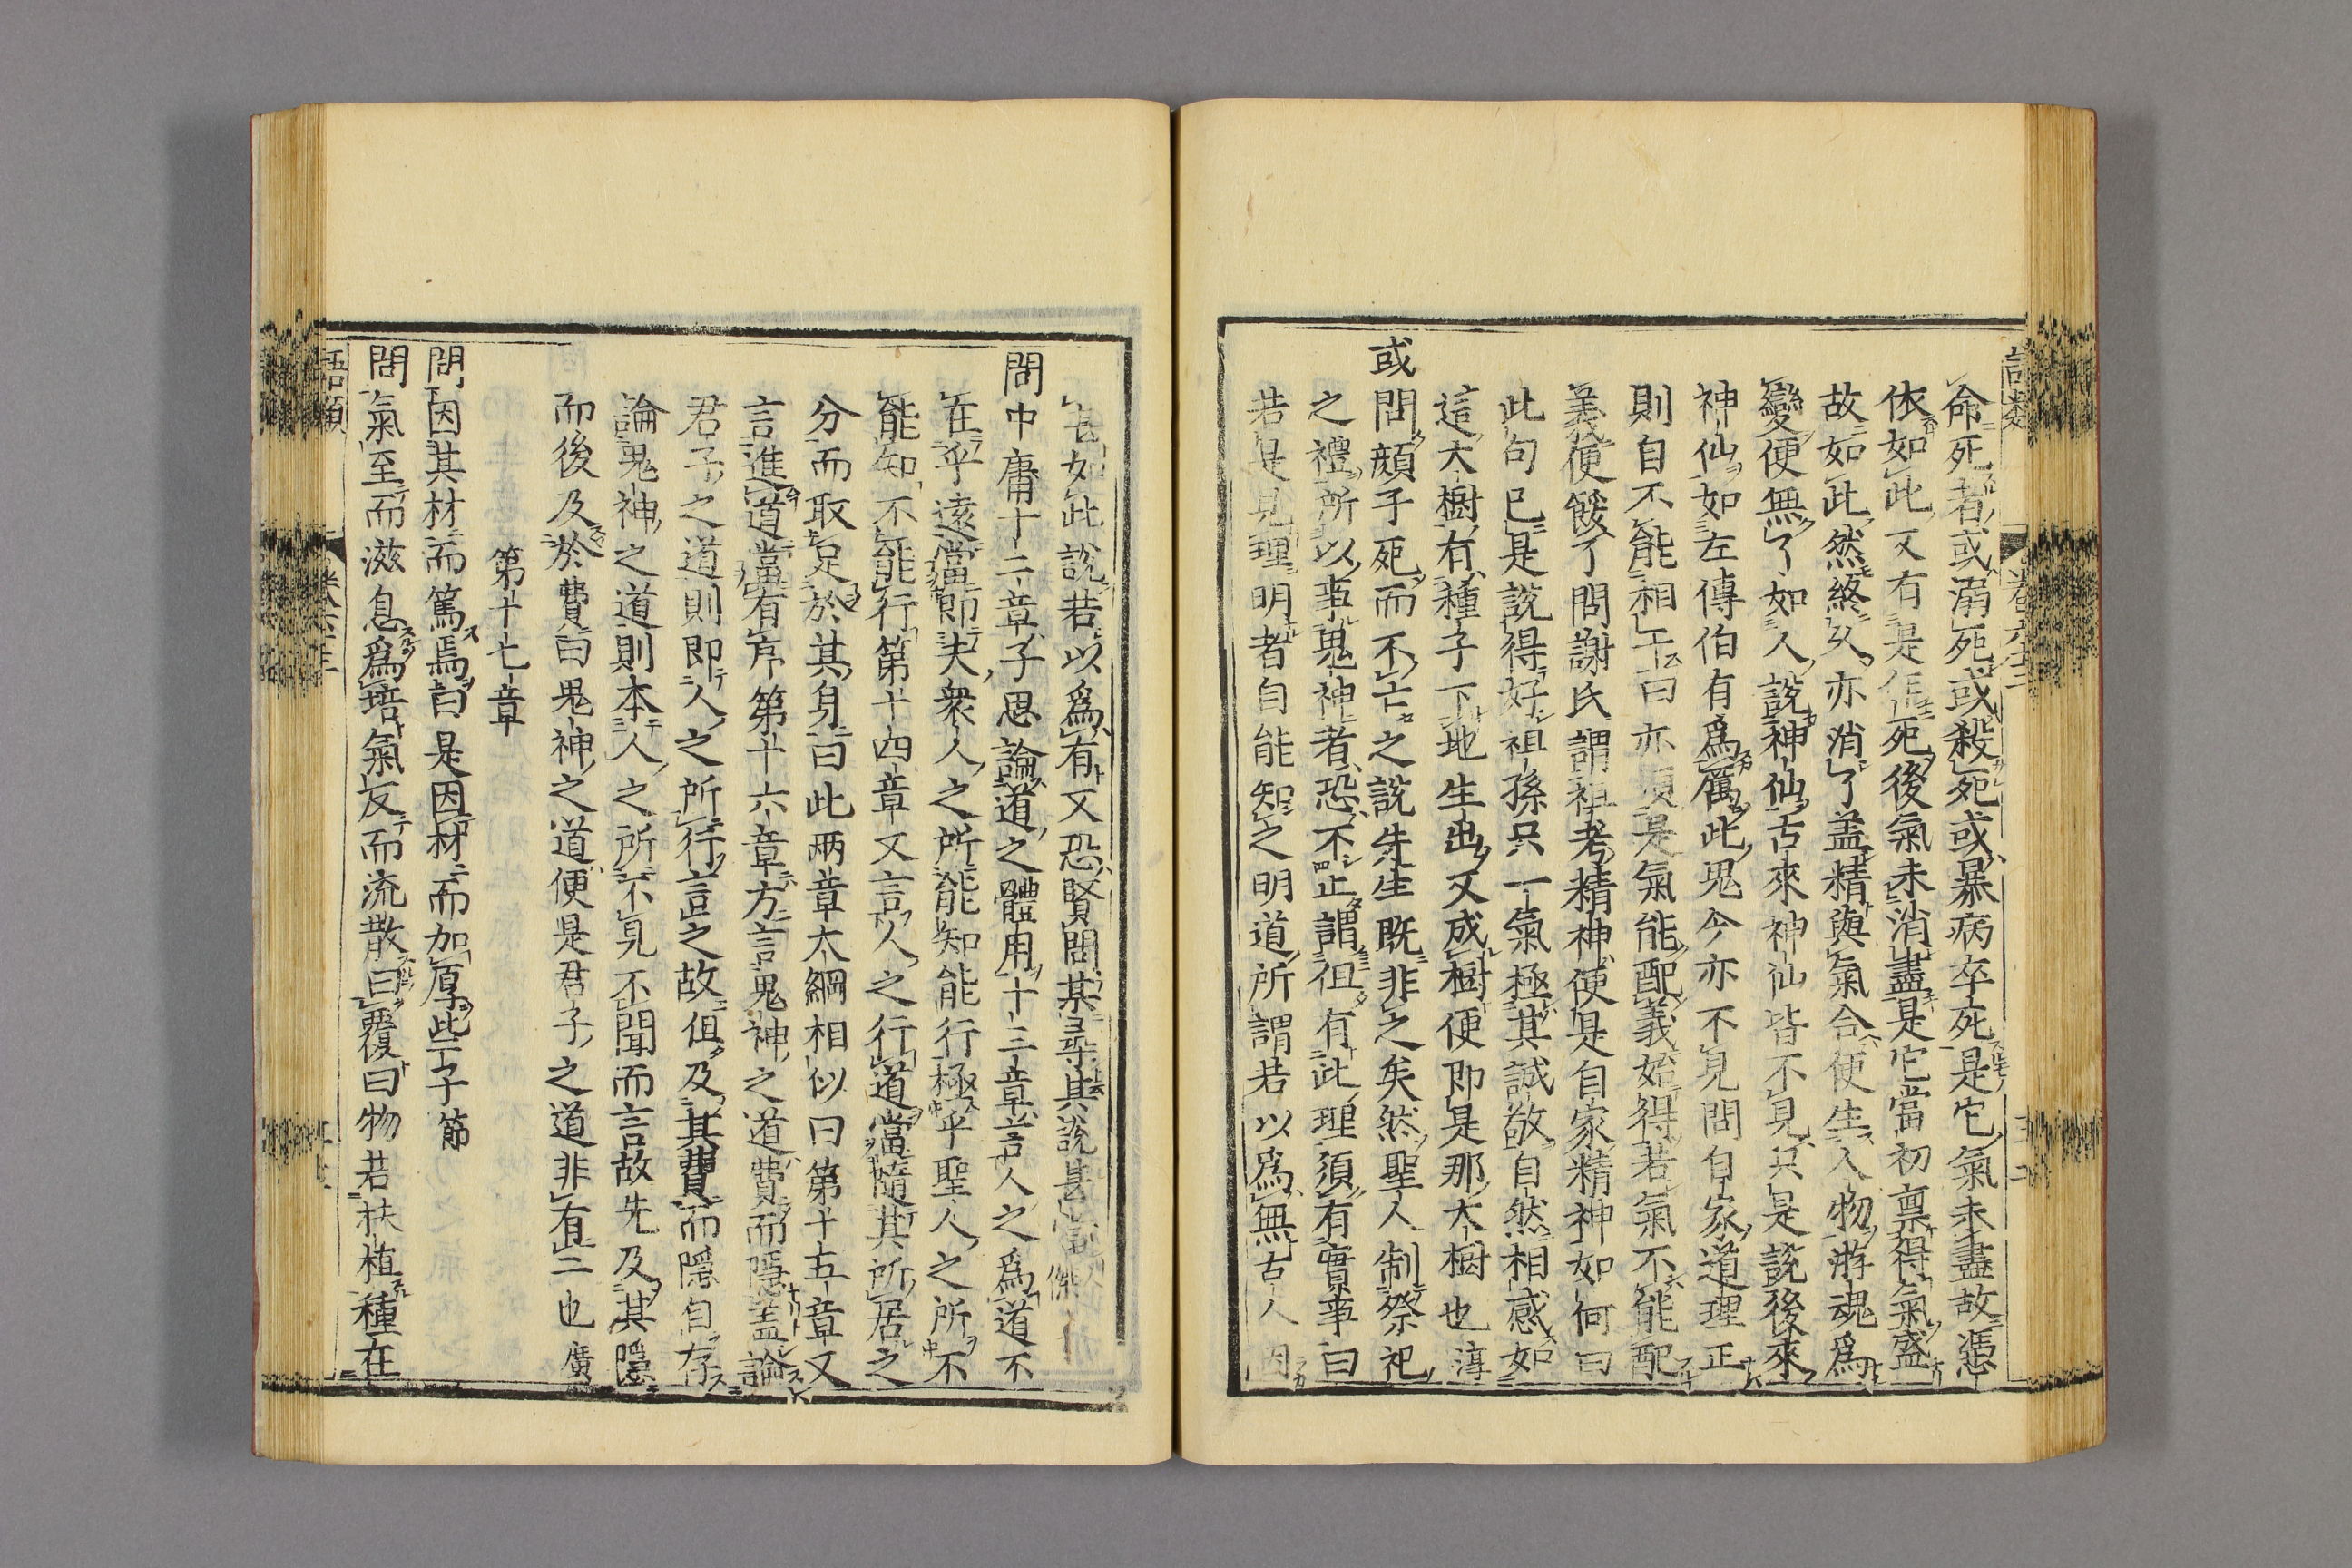 命死者或溺死或殺死或暴病卒死是它氣未盡故憑
依如此又有是乍死後氣未消盡是它當初稟得氣盛
故如此然終久亦消了盖精與氣合便生人物游魂爲
變便無了如人說神仙古來神仙皆不見只是說後來
神仙如左傳伯有爲厲此鬼今亦不見問自家道理正
則自不能相干曰亦須是氣能配義始得若氣不能配
義便餒了問謝氏謂祖考精神便是自家精神如何曰
此句已是說得好祖孫只一氣極其誠敬自然相感如
這大樹有種子下地生出又成樹便即是那大樹也淳
或問顏子死而不亡之說先生既非之矣然聖人制祭祀
之禮所以事鬼神者恐不止謂但有此理須有實事曰
若是見理明者自能知之明道所謂若以爲無古人因
甚如此說若以爲有又恐賢問某尋其說甚當 傑
問中庸十二章子思論道之體用十三章言人之爲道不
在乎遠當即夫衆人之所能知能行極乎聖人之所不
能知不能行第十四章又言人之行道當隨其所居之
分而取足於其身曰此兩章大綱相似曰第十五章又
言進道當有序第十六章方言鬼神之道費而隱盖論
君子之道則即人之所行言之故但及其費而隱自存
論鬼神之道則本人之所不見不聞而言故先及其隱
而後及於費曰鬼神之道便是君子之道非有二也廣
第十七章
問因其材而篤焉曰是因材而加厚些子節
問氣至而滋息爲培氣反而流散曰覆曰物若扶植種在
語類